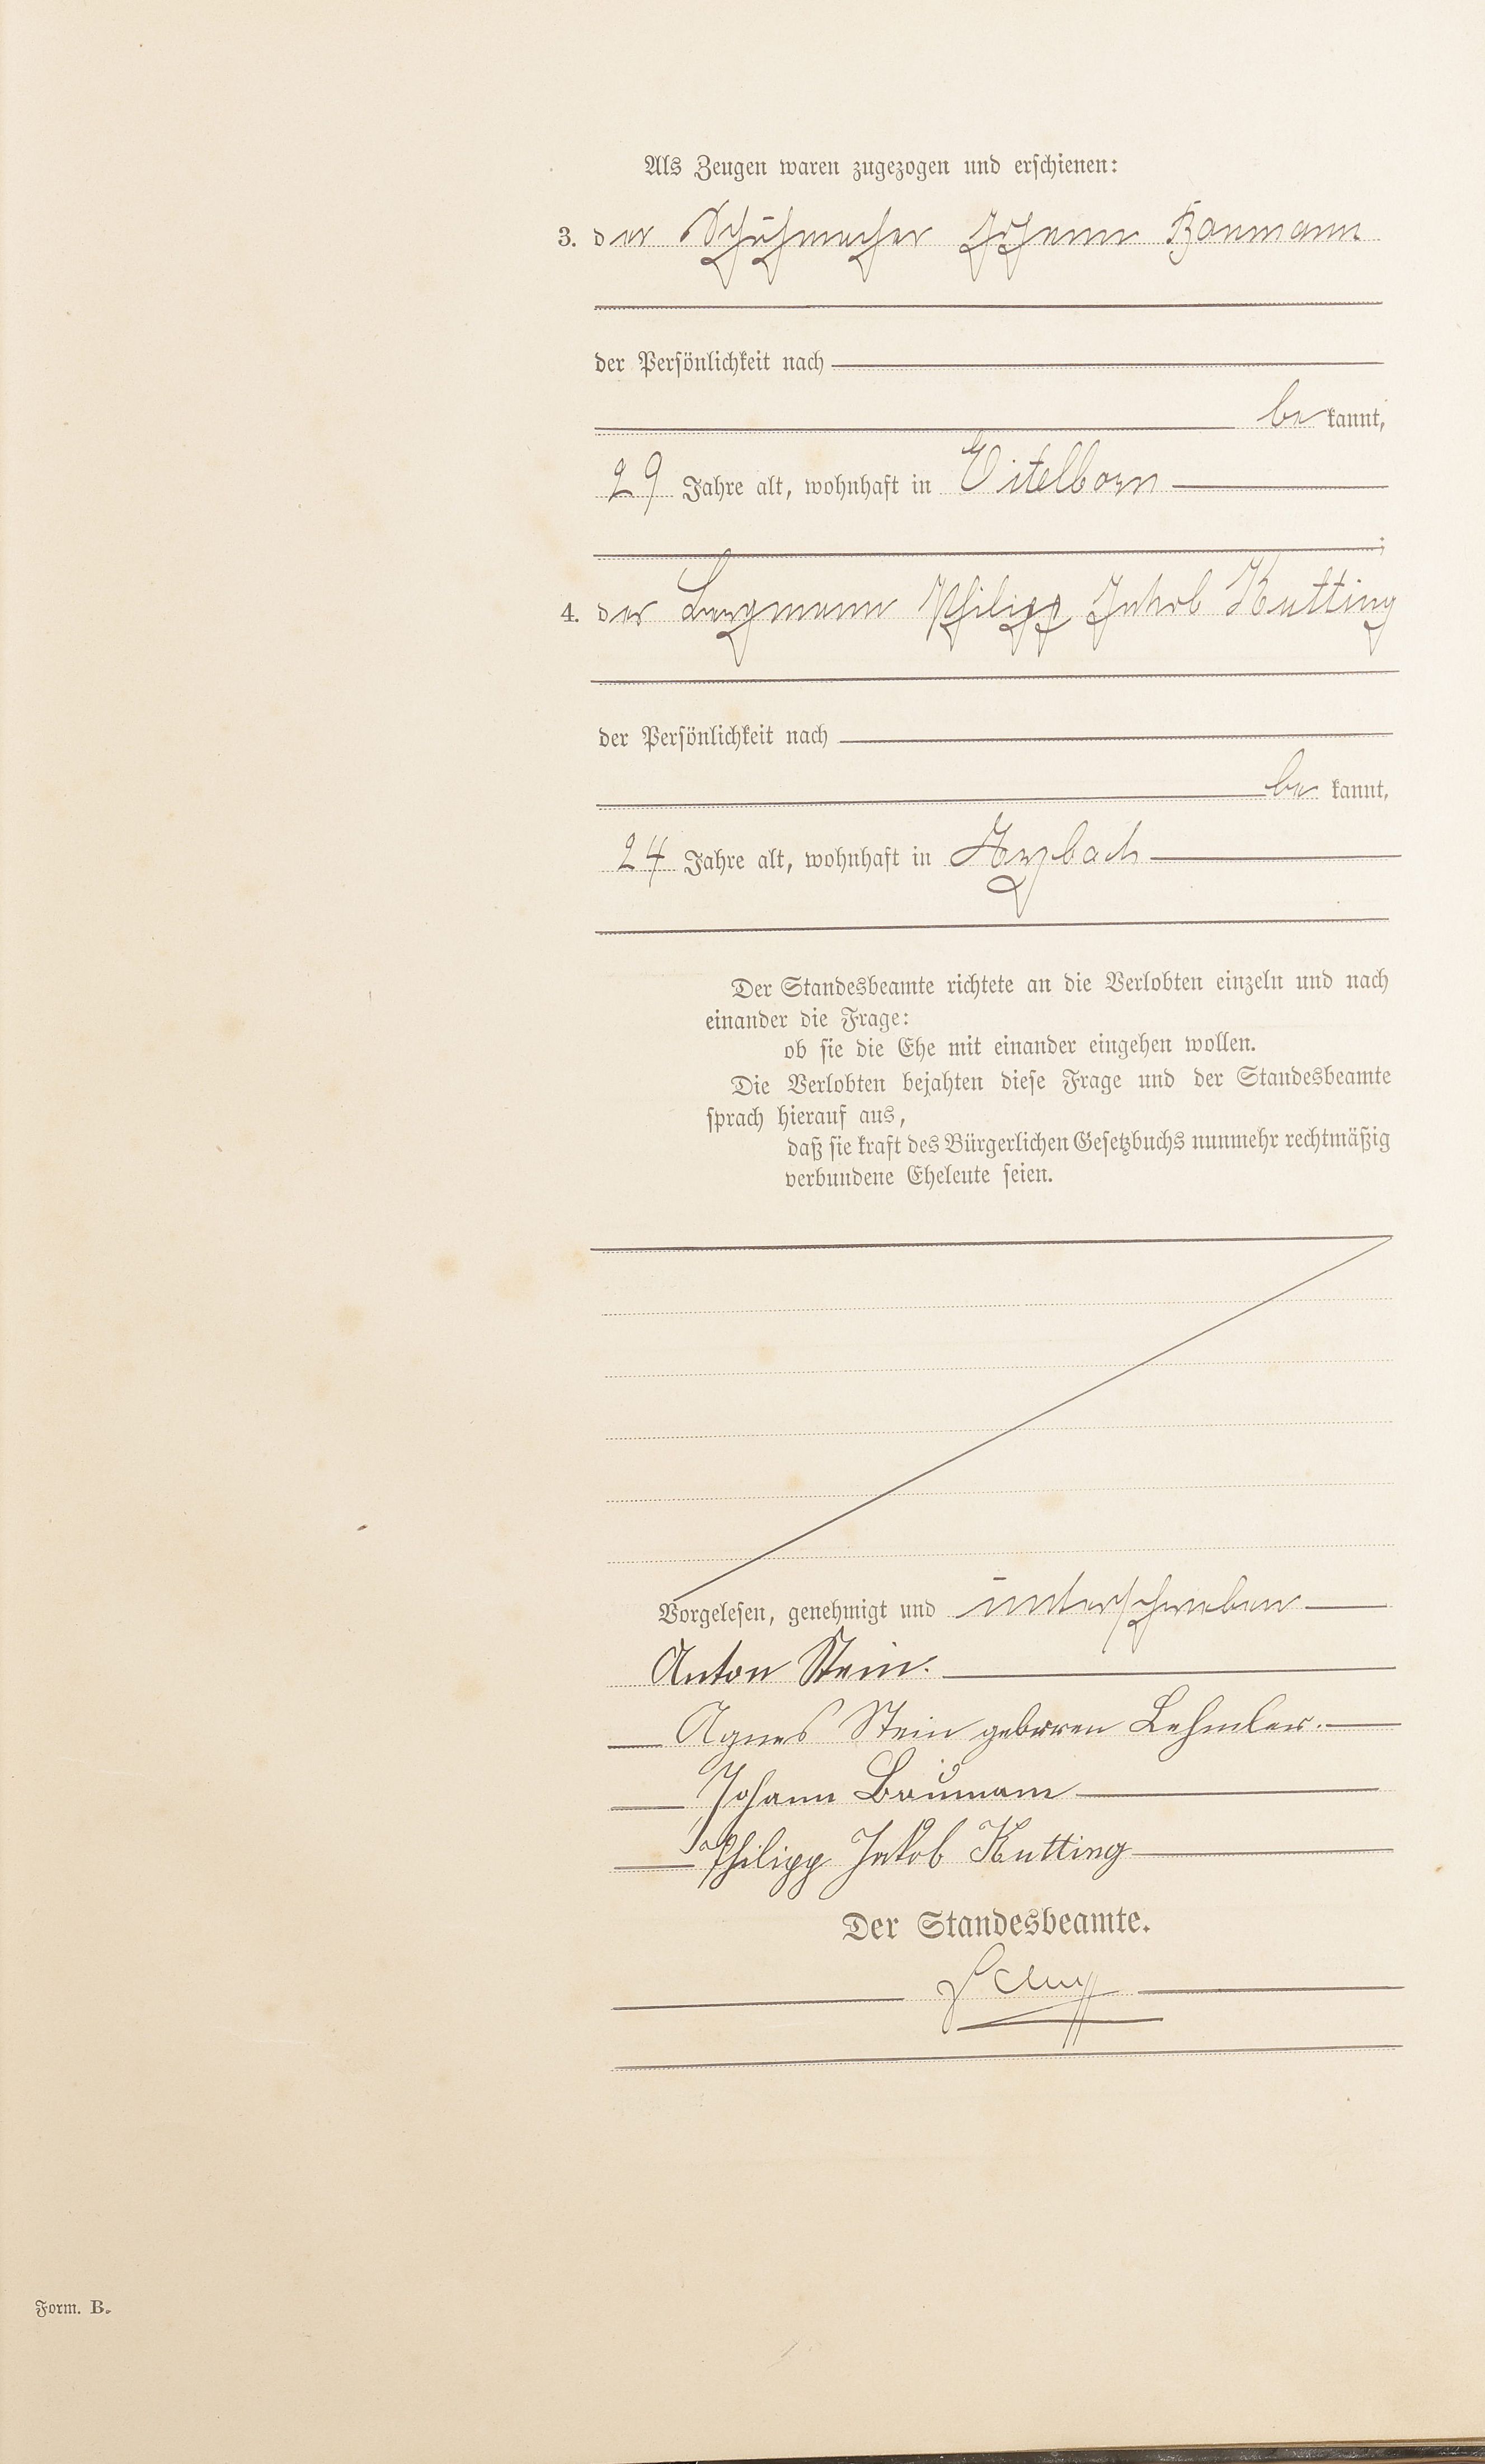 Als Zeugen waren zugezogen und erschienen:
3. der Schuhmacher Johann Baumann
der Persönlichkeit nach
be kannt,
29 Jahre alt, wohnhaft in Eitelborn
;
4. der Bergmann Philipp Jakob Kutting
der Persönlichkeit nach
be kannt,
24 Jahre alt, wohnhaft in Arzbach
Der Standesbeamte richtete an die Verlobten einzeln und nach
einander die Frage:
ob sie die Ehe mit einander eingehen wollen.
Die Verlobten bejahten diese Frage und der Standesbeamte
sprach hierauf aus,
daß sie kraft des Bürgerlichen Gesetzbuchs nunmehr rechtmäßig
verbundene Eheleute seien.
Vorgelesen, genehmigt und unterschrieben
Anton Stein.
Agnes Stein geboren Lehmler.
Johann Baumann
Philipp Jakob Kutting
Der Standesbeamte.
Form. B.